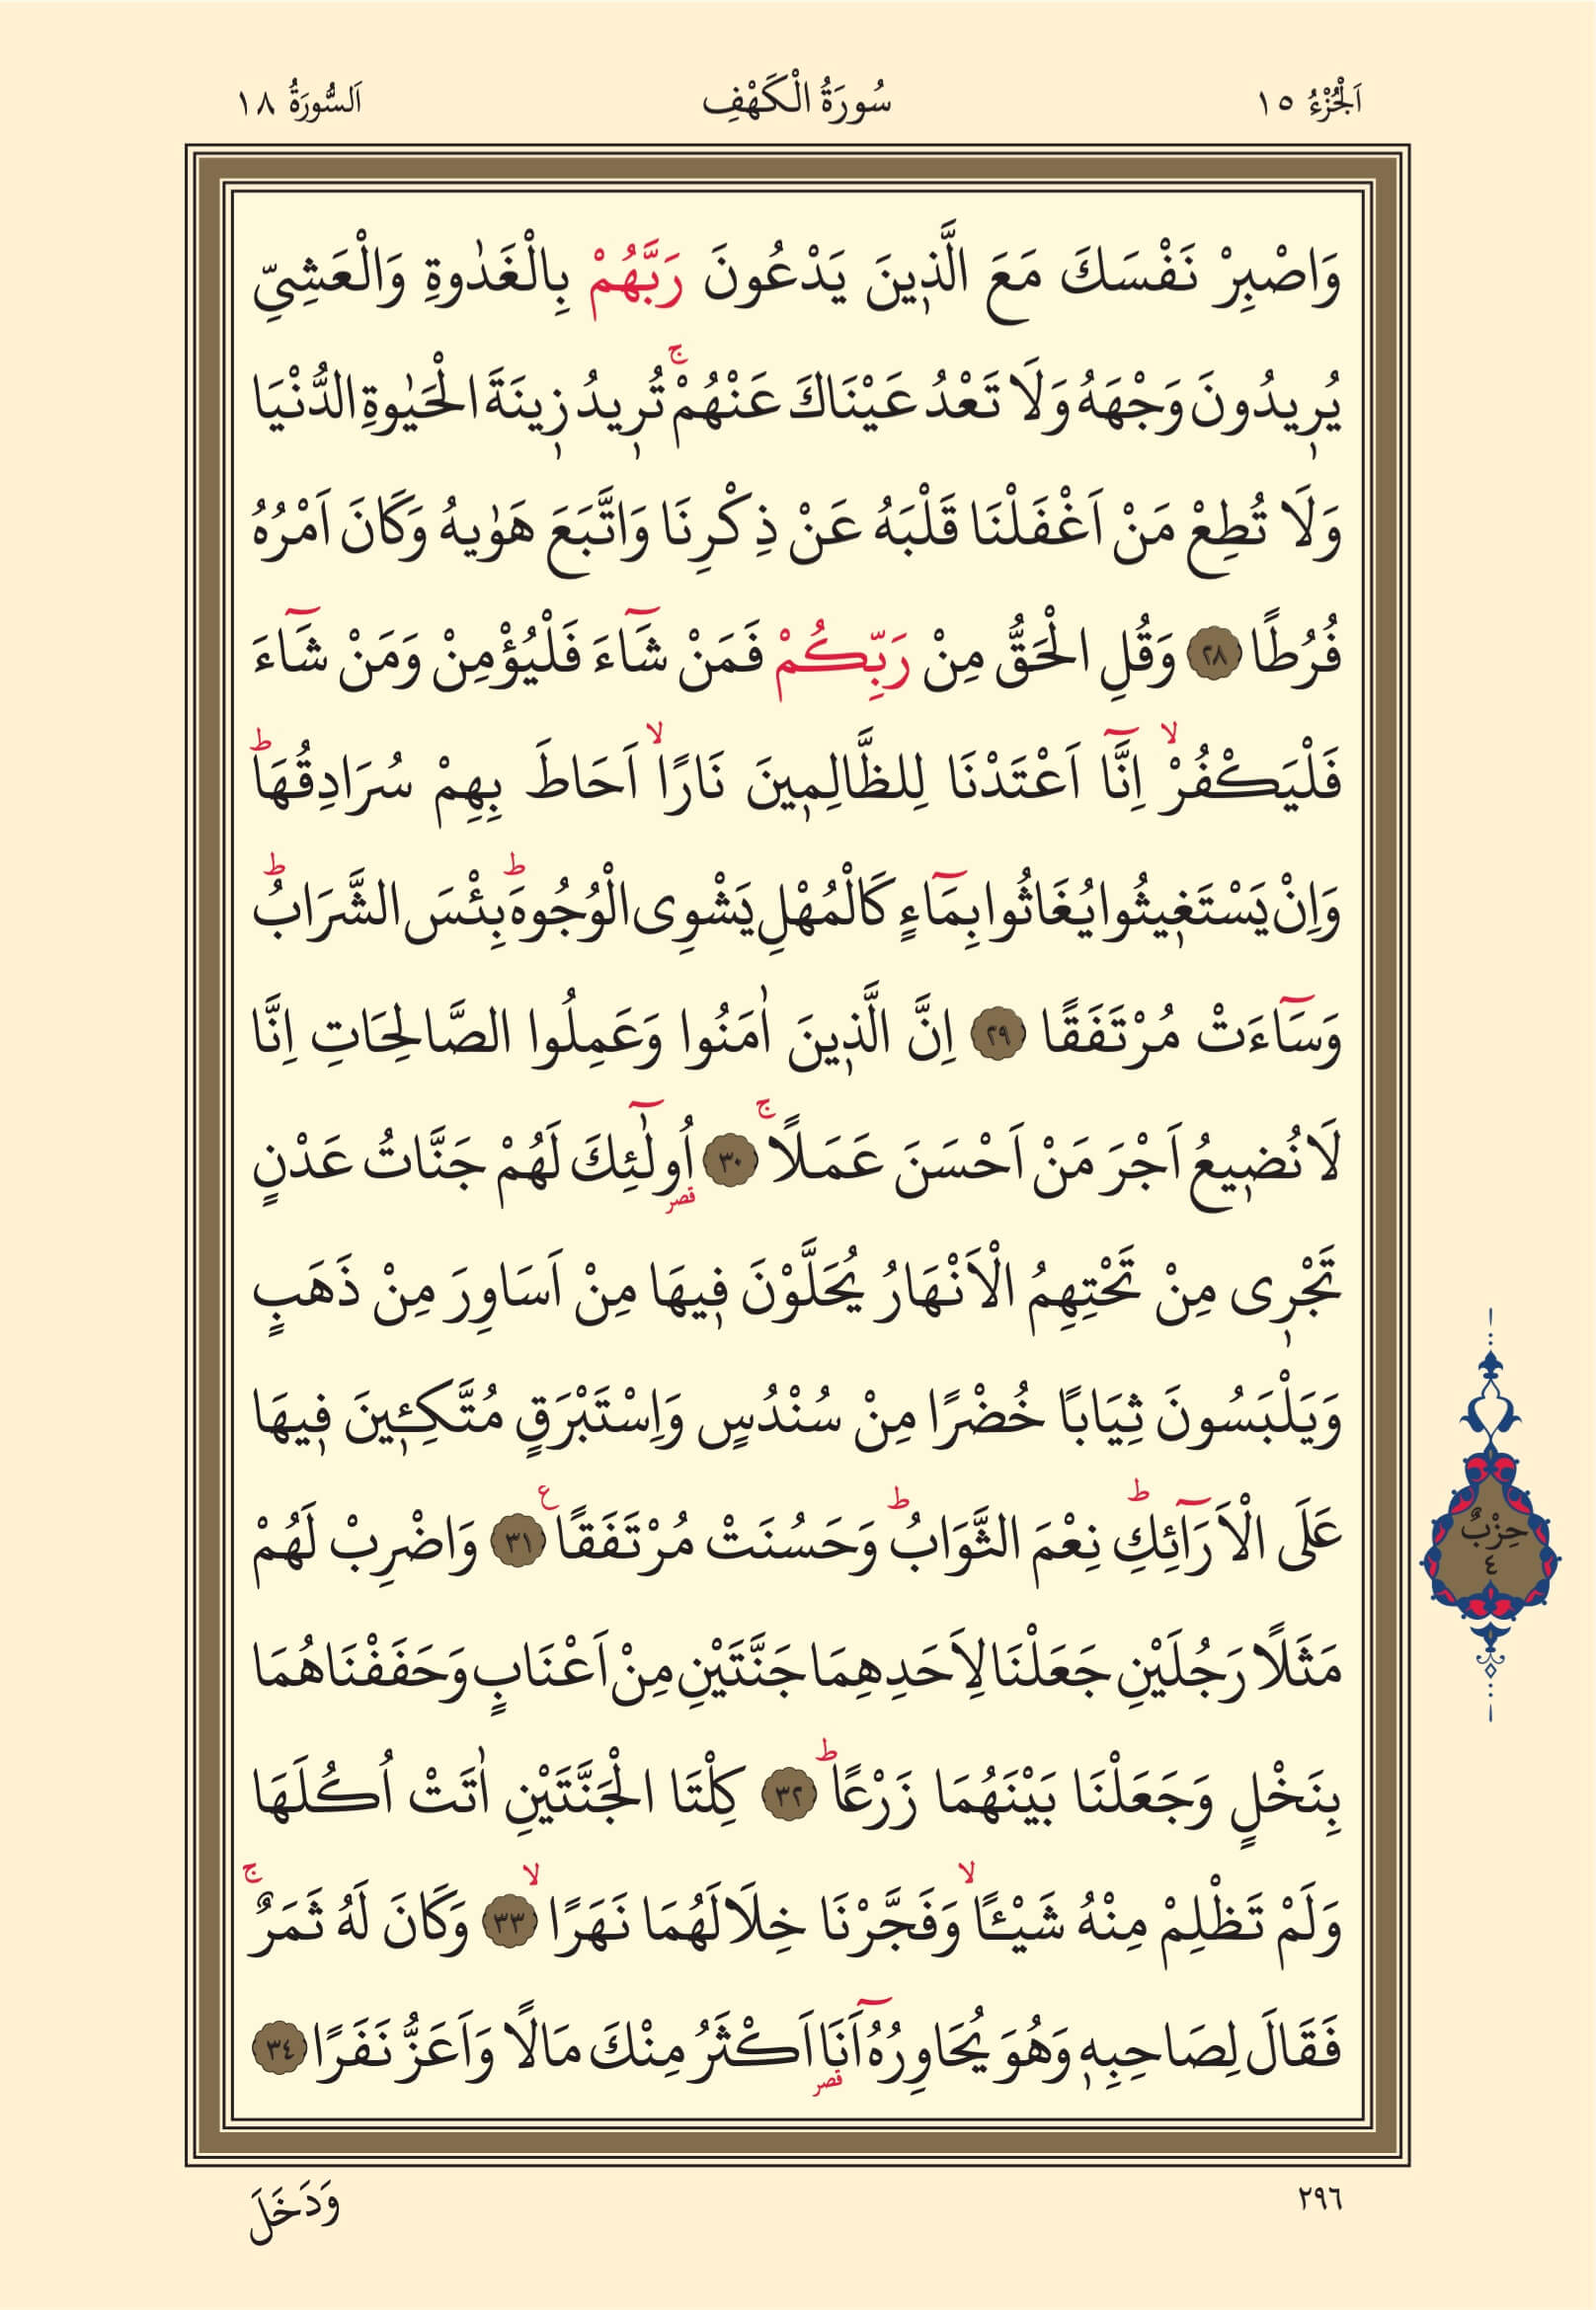 اَلْجُزْءُ ١٥
سُورَةُ الْكَهْفِ
اَلسُّورَةُ ١٨
وَاصْبِرْ نَفْسَكَ مَعَ الَّذ۪ينَ يَدْعُونَ رَبَّهُمْ بِالْغَدٰوةِ وَالْعَشِيِّ
يُر۪يدُونَ وَجْهَهُ وَلَا تَعْدُ عَيْنَاكَ عَنْهُمْۚ تُر۪يدُ ز۪ينَةَ الْحَيٰوةِ الدُّنْيَا
وَلَا تُطِعْ مَنْ اَغْفَلْنَا قَلْبَهُ عَنْ ذِكْرِنَا وَاتَّبَعَ هَوٰيهُ وَكَانَ اَمْرُهُ
فُرُطًا ٢٨ وَقُلِ الْحَقُّ مِنْ رَبِّكُمْ فَمَنْ شَٓاءَ فَلْيُؤْمِنْ وَمَنْ شَٓاءَ
فَلْيَكْفُرْۙ اِنَّٓا اَعْتَدْنَا لِلظَّالِم۪ينَ نَارًاۙ اَحَاطَ بِهِمْ سُرَادِقُهَاۜ
وَاِنْ يَسْتَغ۪يثُوا يُغَاثُوا بِمَٓاءٍ كَالْمُهْلِ يَشْوِي الْوُجُوهَۜ بِئْسَ الشَّرَابُۜ
وَسَٓاءَتْ مُرْتَفَقًا ٢٩ اِنَّ الَّذ۪ينَ اٰمَنُوا وَعَمِلُوا الصَّالِحَاتِ اِنَّا
لَا نُض۪يعُ اَجْرَ مَنْ اَحْسَنَ عَمَلًاۚ ٣٠ اُو۬لٰٓئِكَ لَهُمْ جَنَّاتُ عَدْنٍ
تَجْر۪ي مِنْ تَحْتِهِمُ الْاَنْهَارُ يُحَلَّوْنَ ف۪يهَا مِنْ اَسَاوِرَ مِنْ ذَهَبٍ
وَيَلْبَسُونَ ثِيَابًا خُضْرًا مِنْ سُنْدُسٍ وَاِسْتَبْرَقٍ مُتَّكِـ۪ٔينَ ف۪يهَا
عَلَى الْاَرَٓائِكِۜ نِعْمَ الثَّوَابُۜ وَحَسُنَتْ مُرْتَفَقًا۟ ٣١ وَاضْرِبْ لَهُمْ
مَثَلًا رَجُلَيْنِ جَعَلْنَا لِاَحَدِهِمَا جَنَّتَيْنِ مِنْ اَعْنَابٍ وَحَفَفْنَاهُمَا
بِنَخْلٍ وَجَعَلْنَا بَيْنَهُمَا زَرْعًاۜ ٣٢ كِلْتَا الْجَنَّتَيْنِ اٰتَتْ اُكُلَهَا
وَلَمْ تَظْلِمْ مِنْهُ شَيْـًٔاۙ وَفَجَّرْنَا خِلَالَهُمَا نَهَرًاۙ ٣٣ وَكَانَ لَهُ ثَمَرٌۚ
فَقَالَ لِصَاحِبِه۪ وَهُوَ يُحَاوِرُهُٓ اَنَا۬ اَكْثَرُ مِنْكَ مَالًا وَاَعَزُّ نَفَرًا ٣٤
حِزْبٌ
٤
٢٩٦
وَدَخَلَ